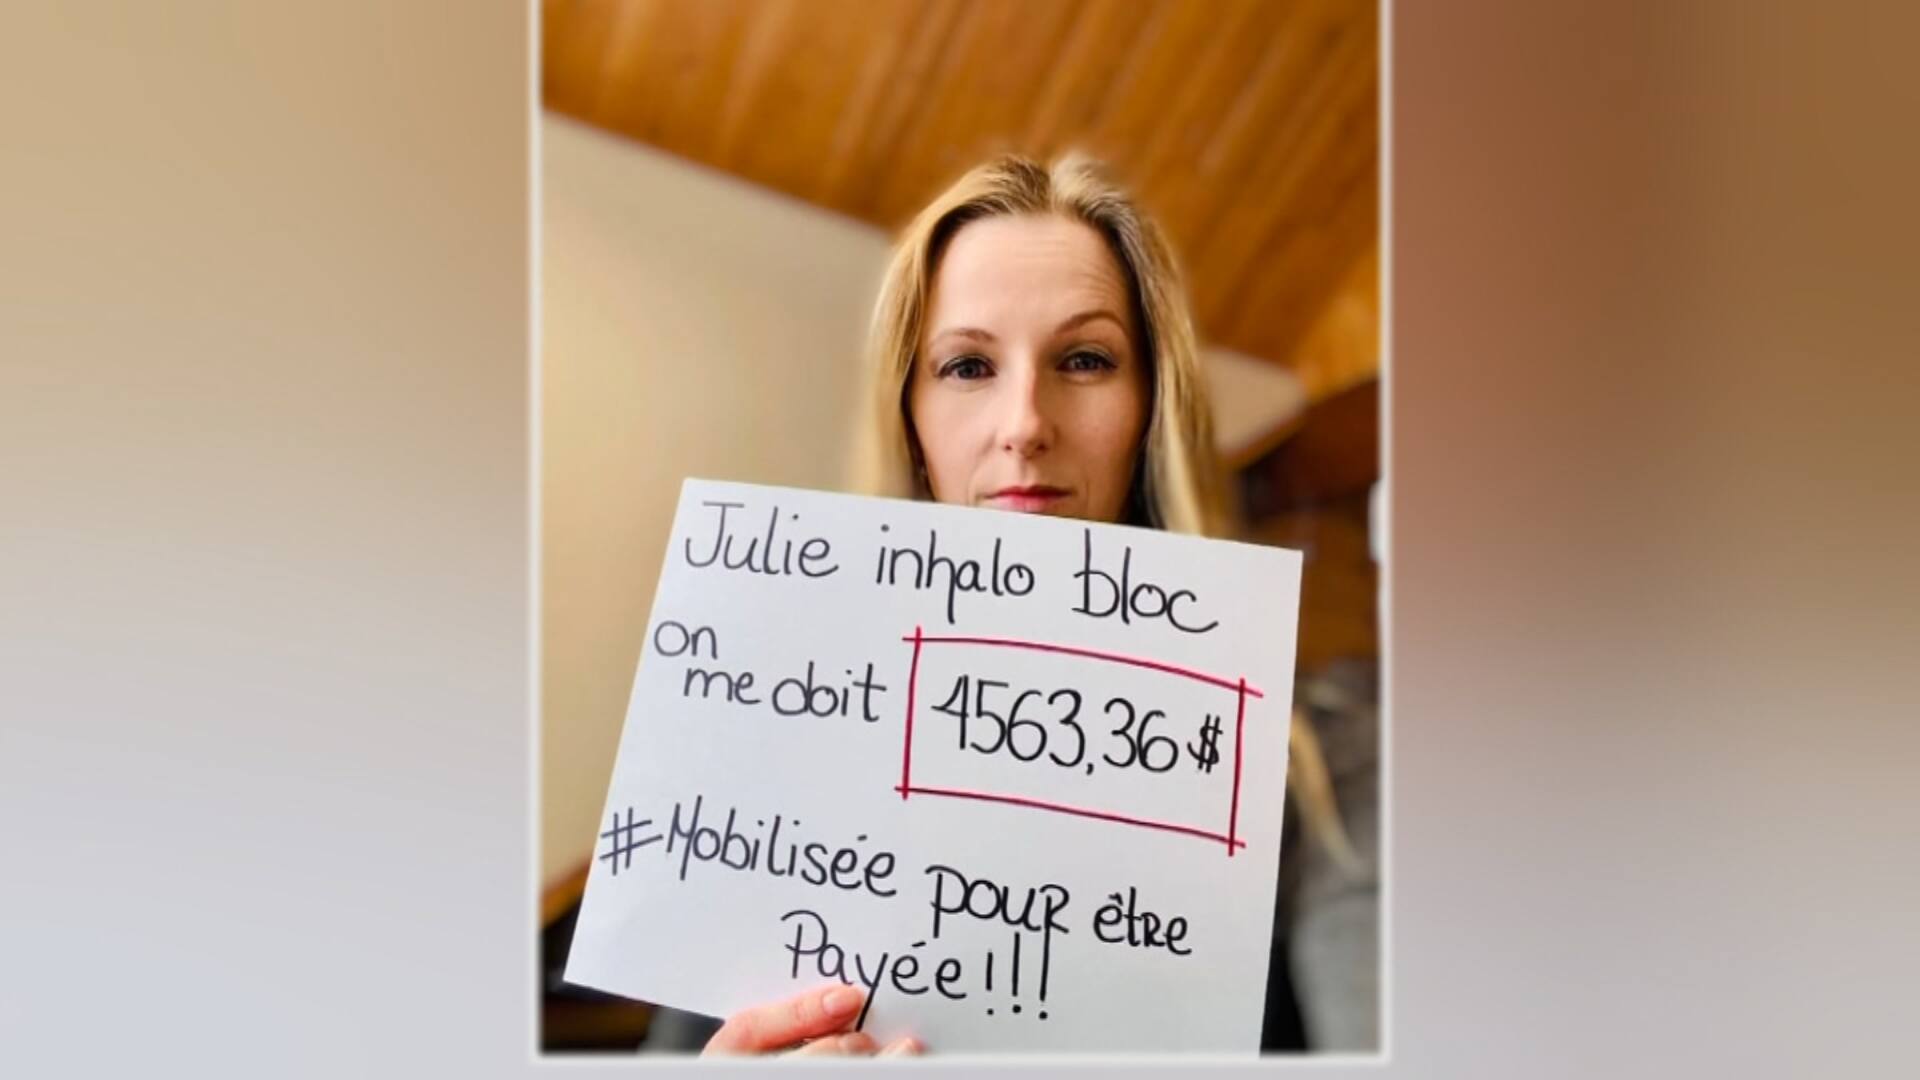 Julie inhalo bloc
on
me doit 4563,36 $
#Mobilisée pour être
Payée!!!